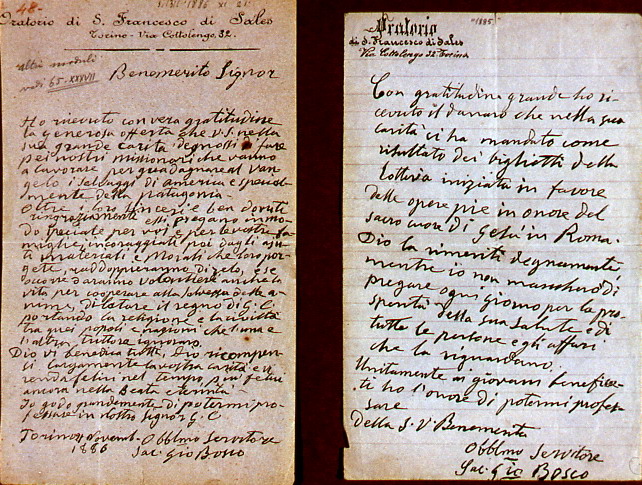 48-
1886 XI 21
Oratorio di S. Francesco di Sales
Torino - Via Cottolengo, 32.
altri moduli
vedi 65-XXVII
Benemerito Signor
Ho ricevuto con vera gratitudine
la generosa offerta che V. S. nella
sua grande carità degnossi di fare
pei nostri missionari che vanno
a lavorare per guadagnare al Van
gelo i selvaggi di America e special
mente della Patagonia.
Oltre i loro sinceri e ben dovuti
ringraziamenti essi pregano in mo
do speciale per voi e per le vostre fa
miglie, incoraggiati poi dagli aju
ti materiali e morali che loro por
gete, raddoppieranno di zelo, e se
occorre daranno volontieri anche la
vita per cooperare alla salvezza delle a
nime, dilatare il regno di G. C.
portando la religione e la civiltà
tra quei popoli e nazioni che l'una e
l'altra tuttora ignorano.
Dio vi benedica tutti, Dio ricompen
si largamente la vostra carità e vi
renda felici nel tempo, più felici
ancora nella beata eternità.
Io godo grandemente di potermi pro
fessare in nostro Signor G. C
Torino novemb.
1886
Obblmo Servitore
Sac. Gio Bosco
(1885)
Oratorio
di S. Francesco di Sales
Via Cottolengo 32 Torino
Con gratitudine grande ho ri
cevuto il danaro che nella sua
carità ci ha mandato come
risultato dei biglietti della
lotteria iniziata in favore
delle opere pie in onore del
sacro cuore di Gesù in Roma.
Dio la rimeriti degnamente
mentre io non mancherò di
pregare ogni giorno per la pro
sperità della sua salute e di
tutte le persone e gli affari
che la riguardano.
Unitamente ai giovani benefica
ti ho l'onore di potermi profes
sare
della S. V. Benemerita
Obblmo Servitore
Sac. Gio Bosco